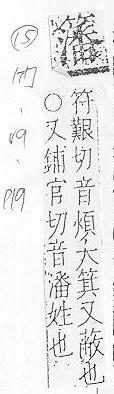 ⑮
籓
符艱切音煩大箕又蔽也
○又鋪官切音潘姓也